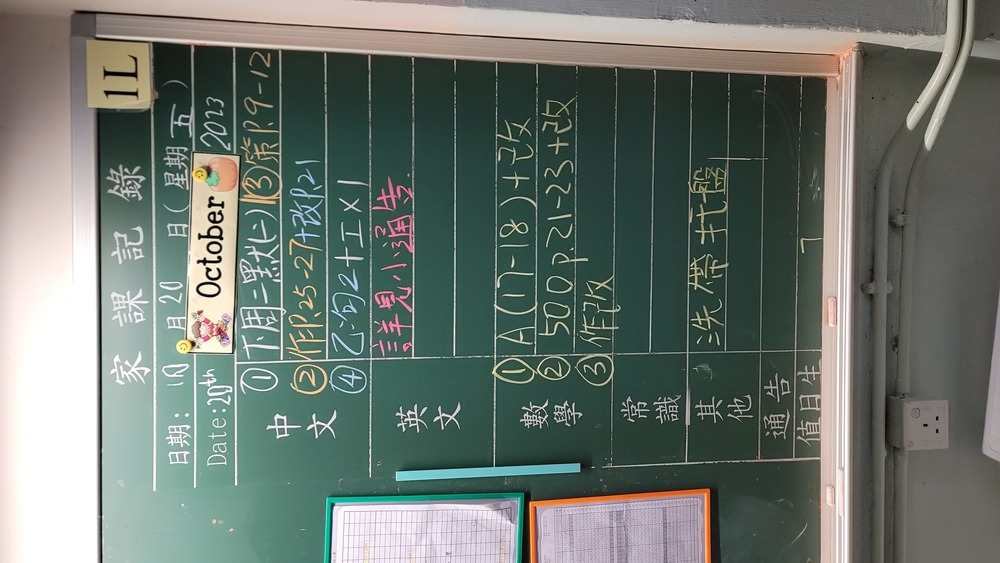 1L
家課記錄
日期: 10 月 20 日 (星期 五 )
Date: 20th October 2023
中文
① 下周二默(二) ③ 策P.9-12
② 作P.25-27+改P.21
④ 乙句2+工×1
英文
詳見小通告
數學
① A(17-18)+改
② 500 p.21-23+改
③ 作改
常識
其他
洗帶托盤
通告
值日生
7